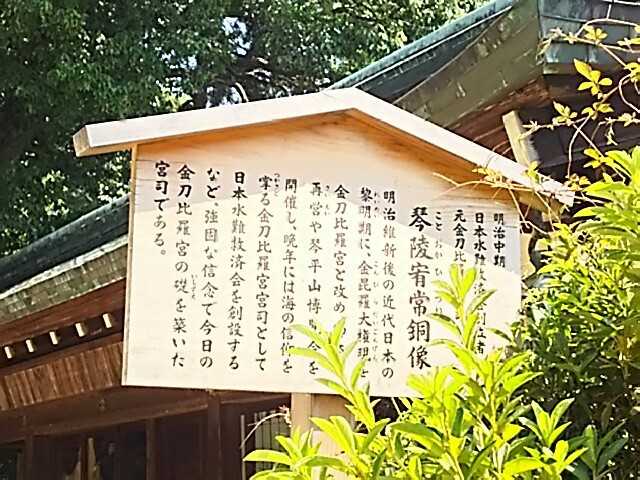 明治中期
日本水難救済
元金刀比
琴陵宥常銅像
こと おか ひろ つね
明治維新後の近代日本の
黎明期に、金毘羅大権現を
金刀比羅宮と改め、
再営や琴平山博覧会を
開催し、晩年には海の信仰を
掌る金刀比羅宮宮司として
日本水難救済会を創設する
など、強固な信念で今日の
金刀比羅宮の礎を築いた
宮司である。